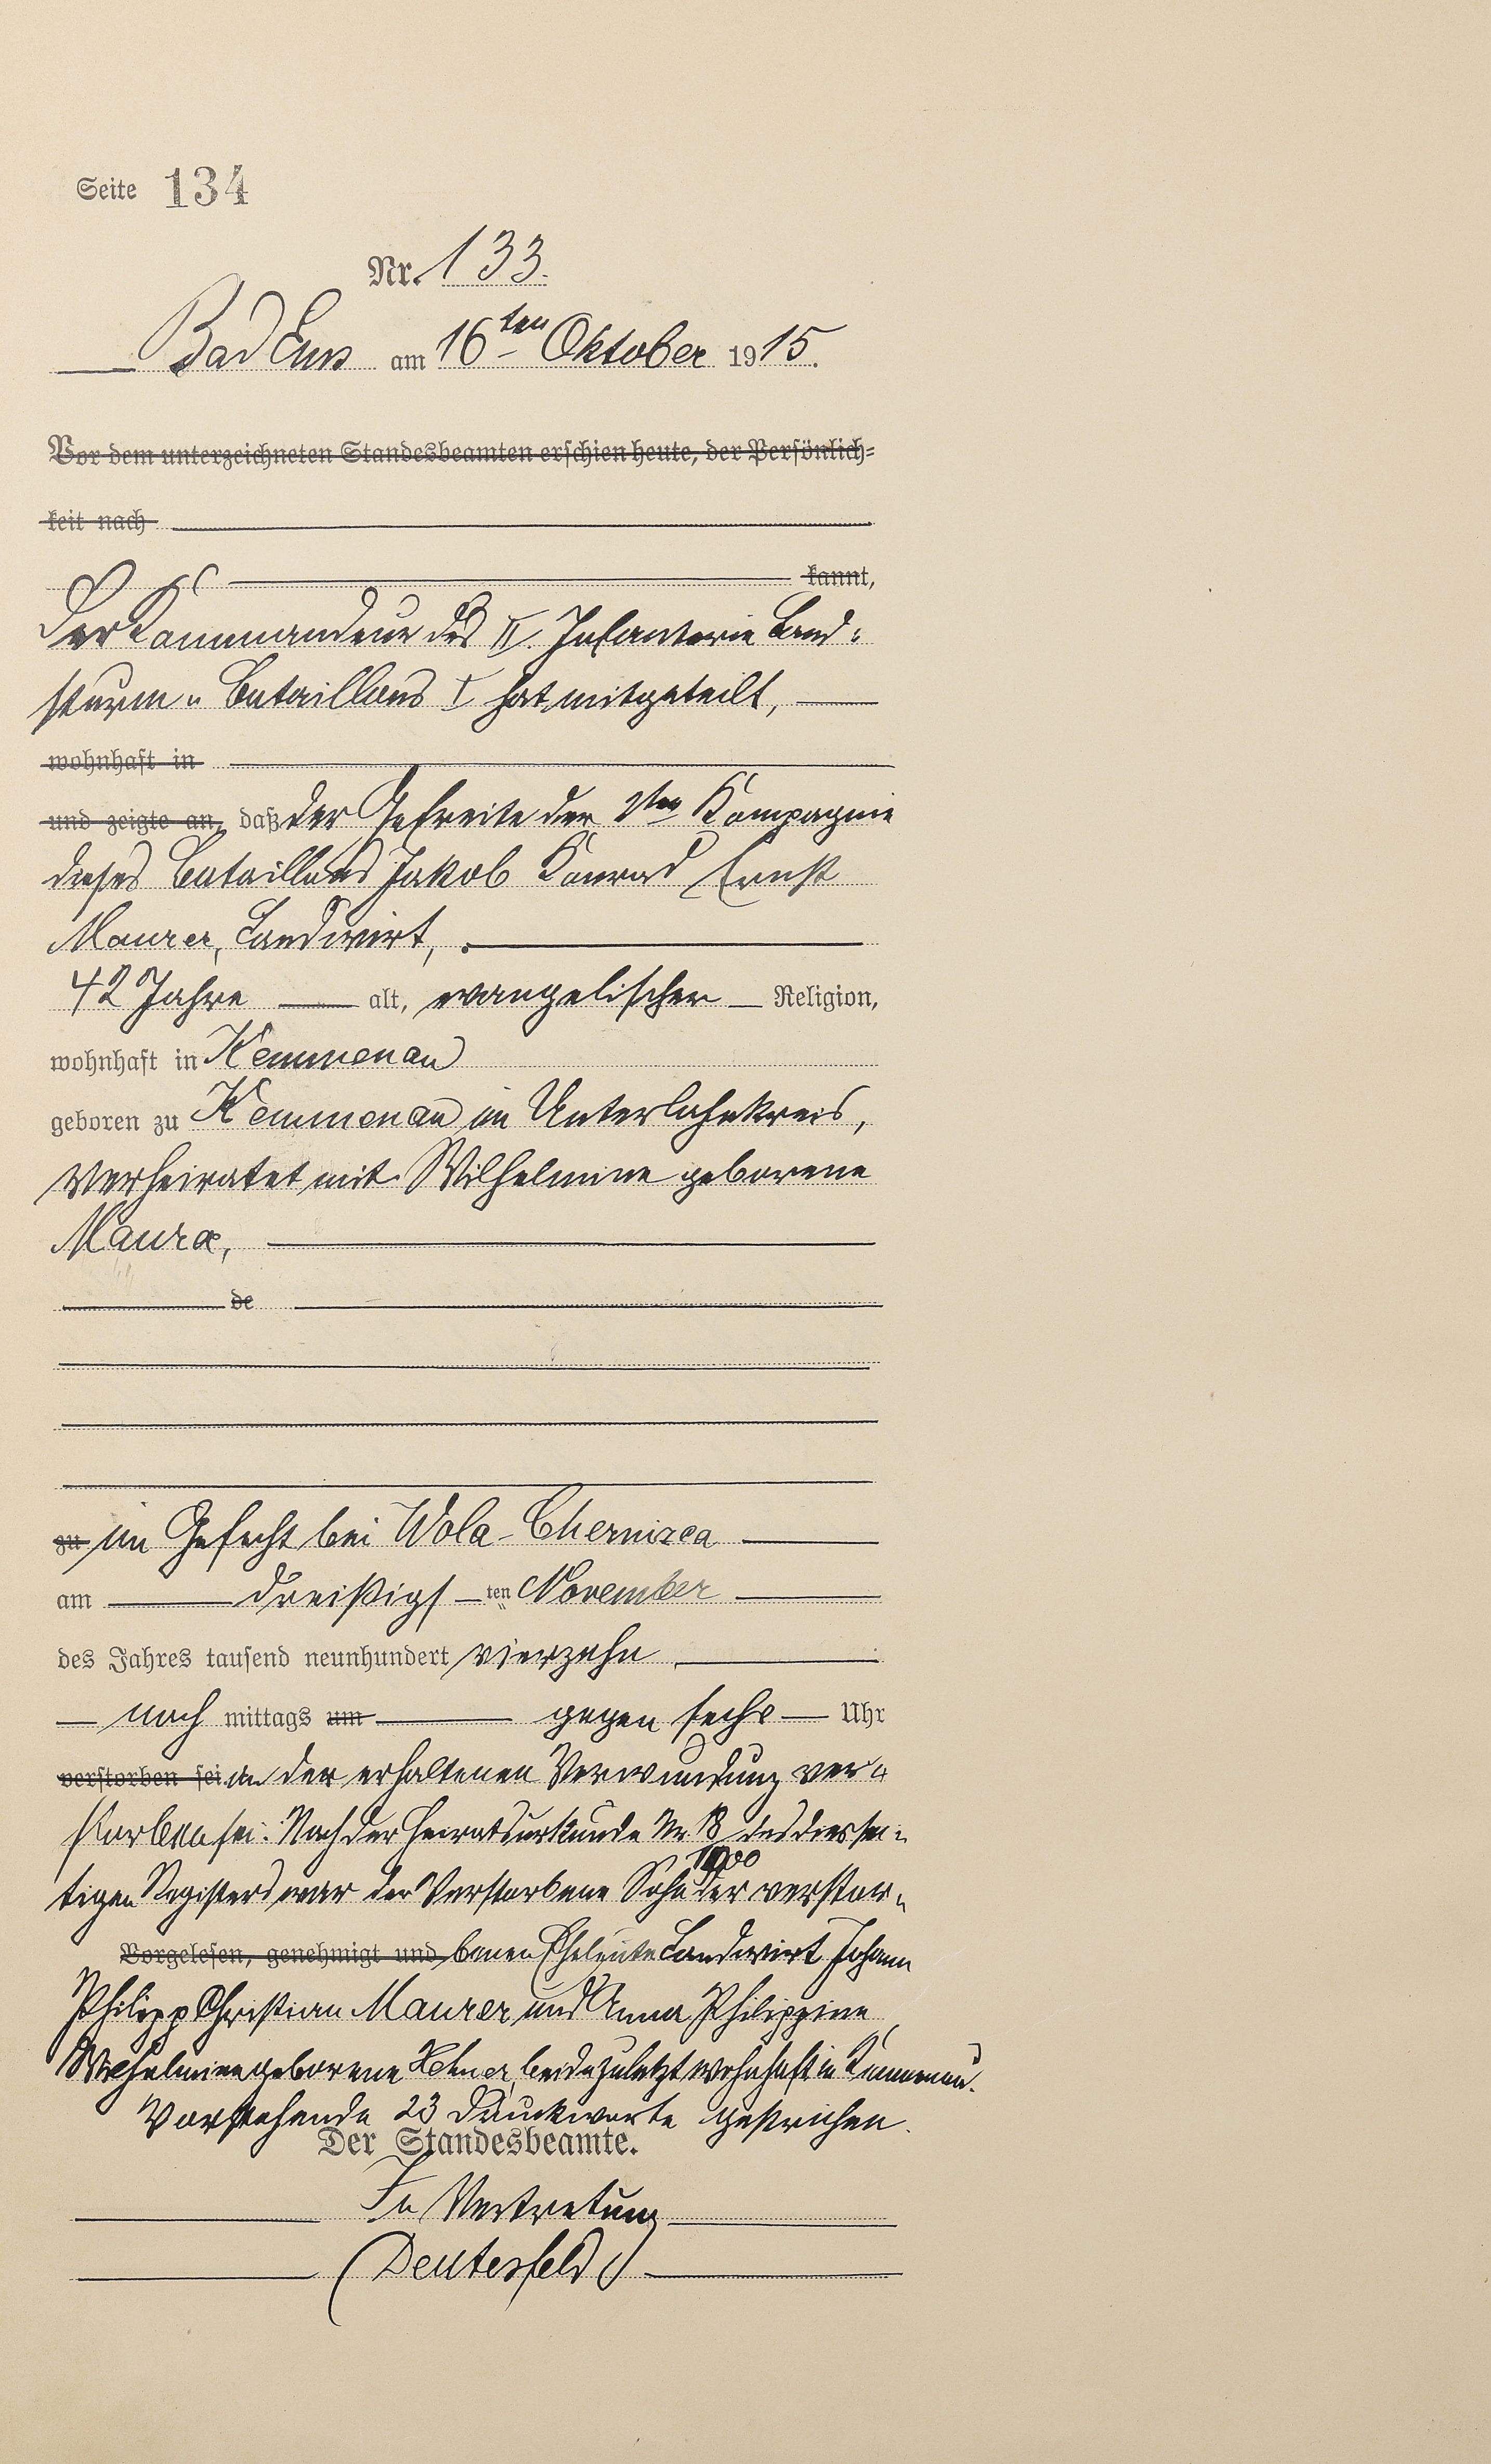 Seite 134
Nr. 133.
Bad Ems am 16ten Oktober 1915.
Vor dem unterzeichneten Standesbeamten erschien heute, der Persönlich-
keit nach
kannt,
Der Kommandeur des II. Infanterie Land-
sturm- Bataillons I hat mitgeteilt,
wohnhaft in
und zeigte an, daß der Gefreite der Kompagnie
dieses Bataillons Jakob Konrad Ernst
Maurer, Landwirt,
42 Jahre alt, evangelischer Religion,
wohnhaft in Kemmenau
geboren zu Kemmenau im Unterlahnkreis,
verheiratet mit Wilhelmine geborene
Maurer,
de
zu im Gefecht bei Wola-
am dreißigsten November
des Jahres tausend neunhundert vierzehn
nach mittags um gegen sechs Uhr
verstorben sei an der erhaltenen Verwundung ver-
storben sei. Nach der Heiratsurkunde Nr. 18/1900 des diessei-
tigen Registers war der Verstorbene Sohn der verstor-
Vorgelesen, genehmigt und benen Eheleute Landwirt Johann
Philipp Christian Maurer und Anna Philippine
Wilhelmine geborene beide zuletzt wohnhaft in Kemmenau.
Vorstehende 23 Druckworte gestrichen.
Der Standesbeamte.
In Vertretung